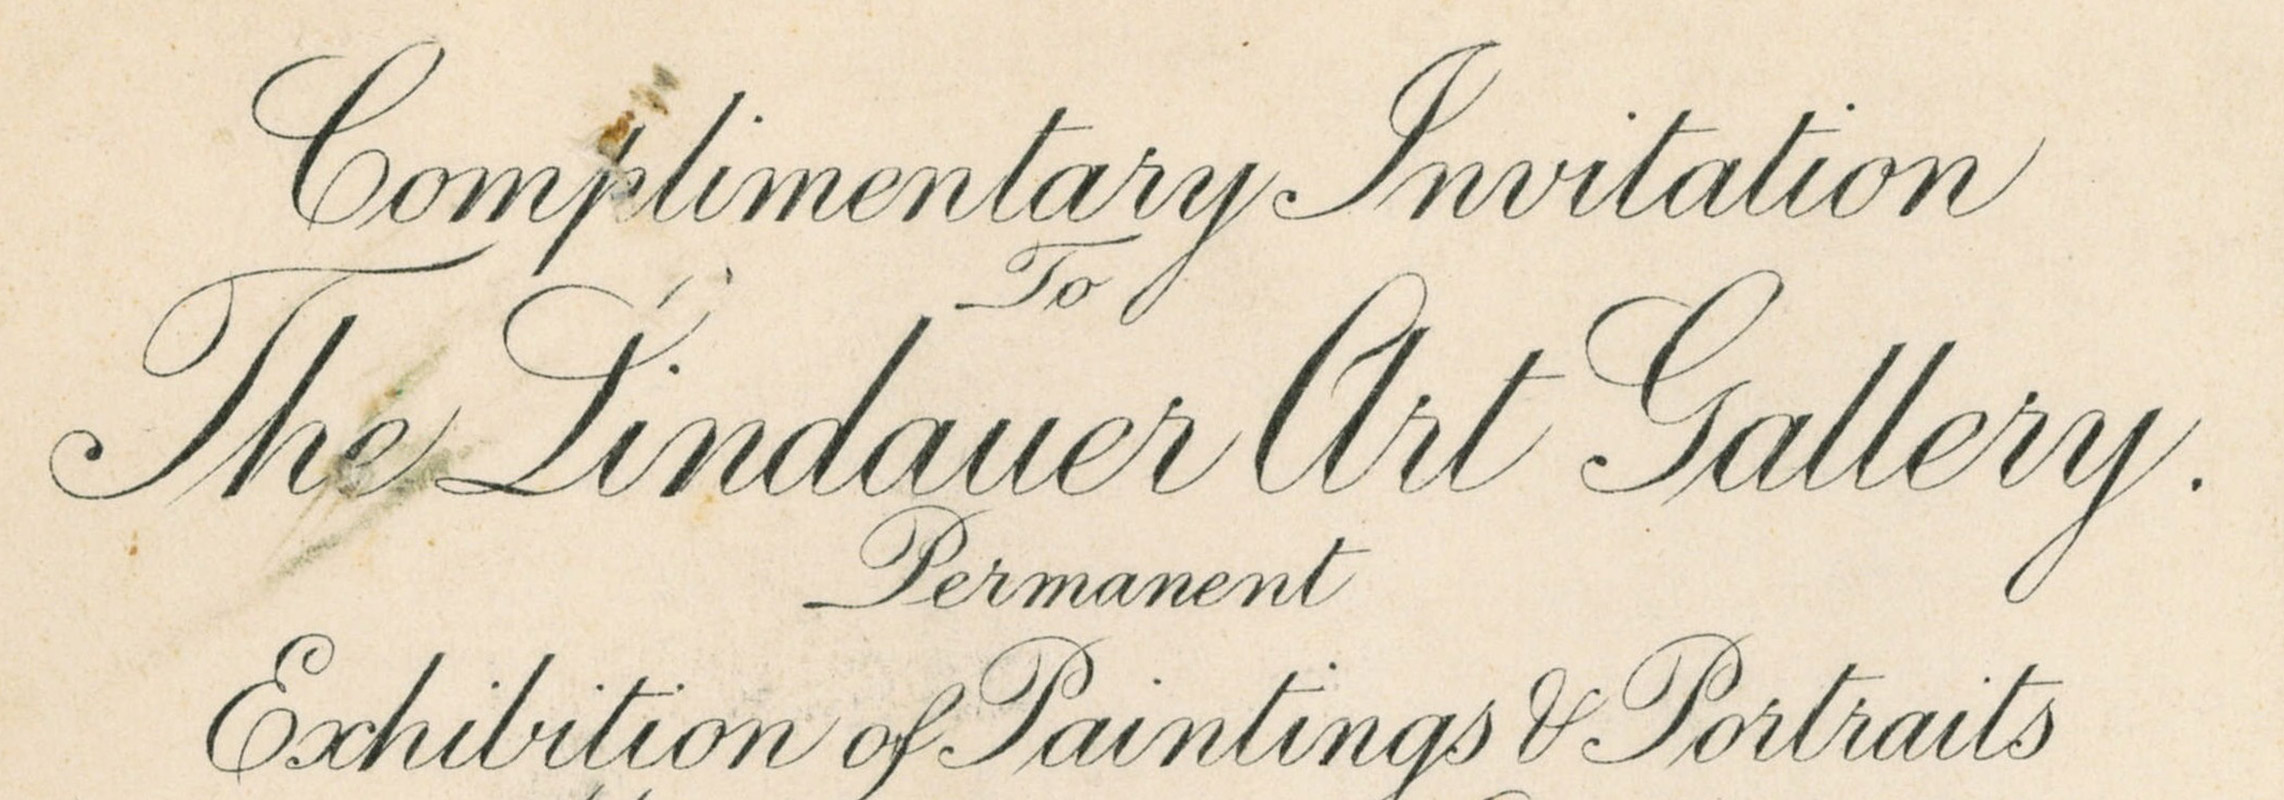 Complimentary Invitation
To
The Lindauer Art Gallery.
Permanent
Exhibition of Paintings & Portraits